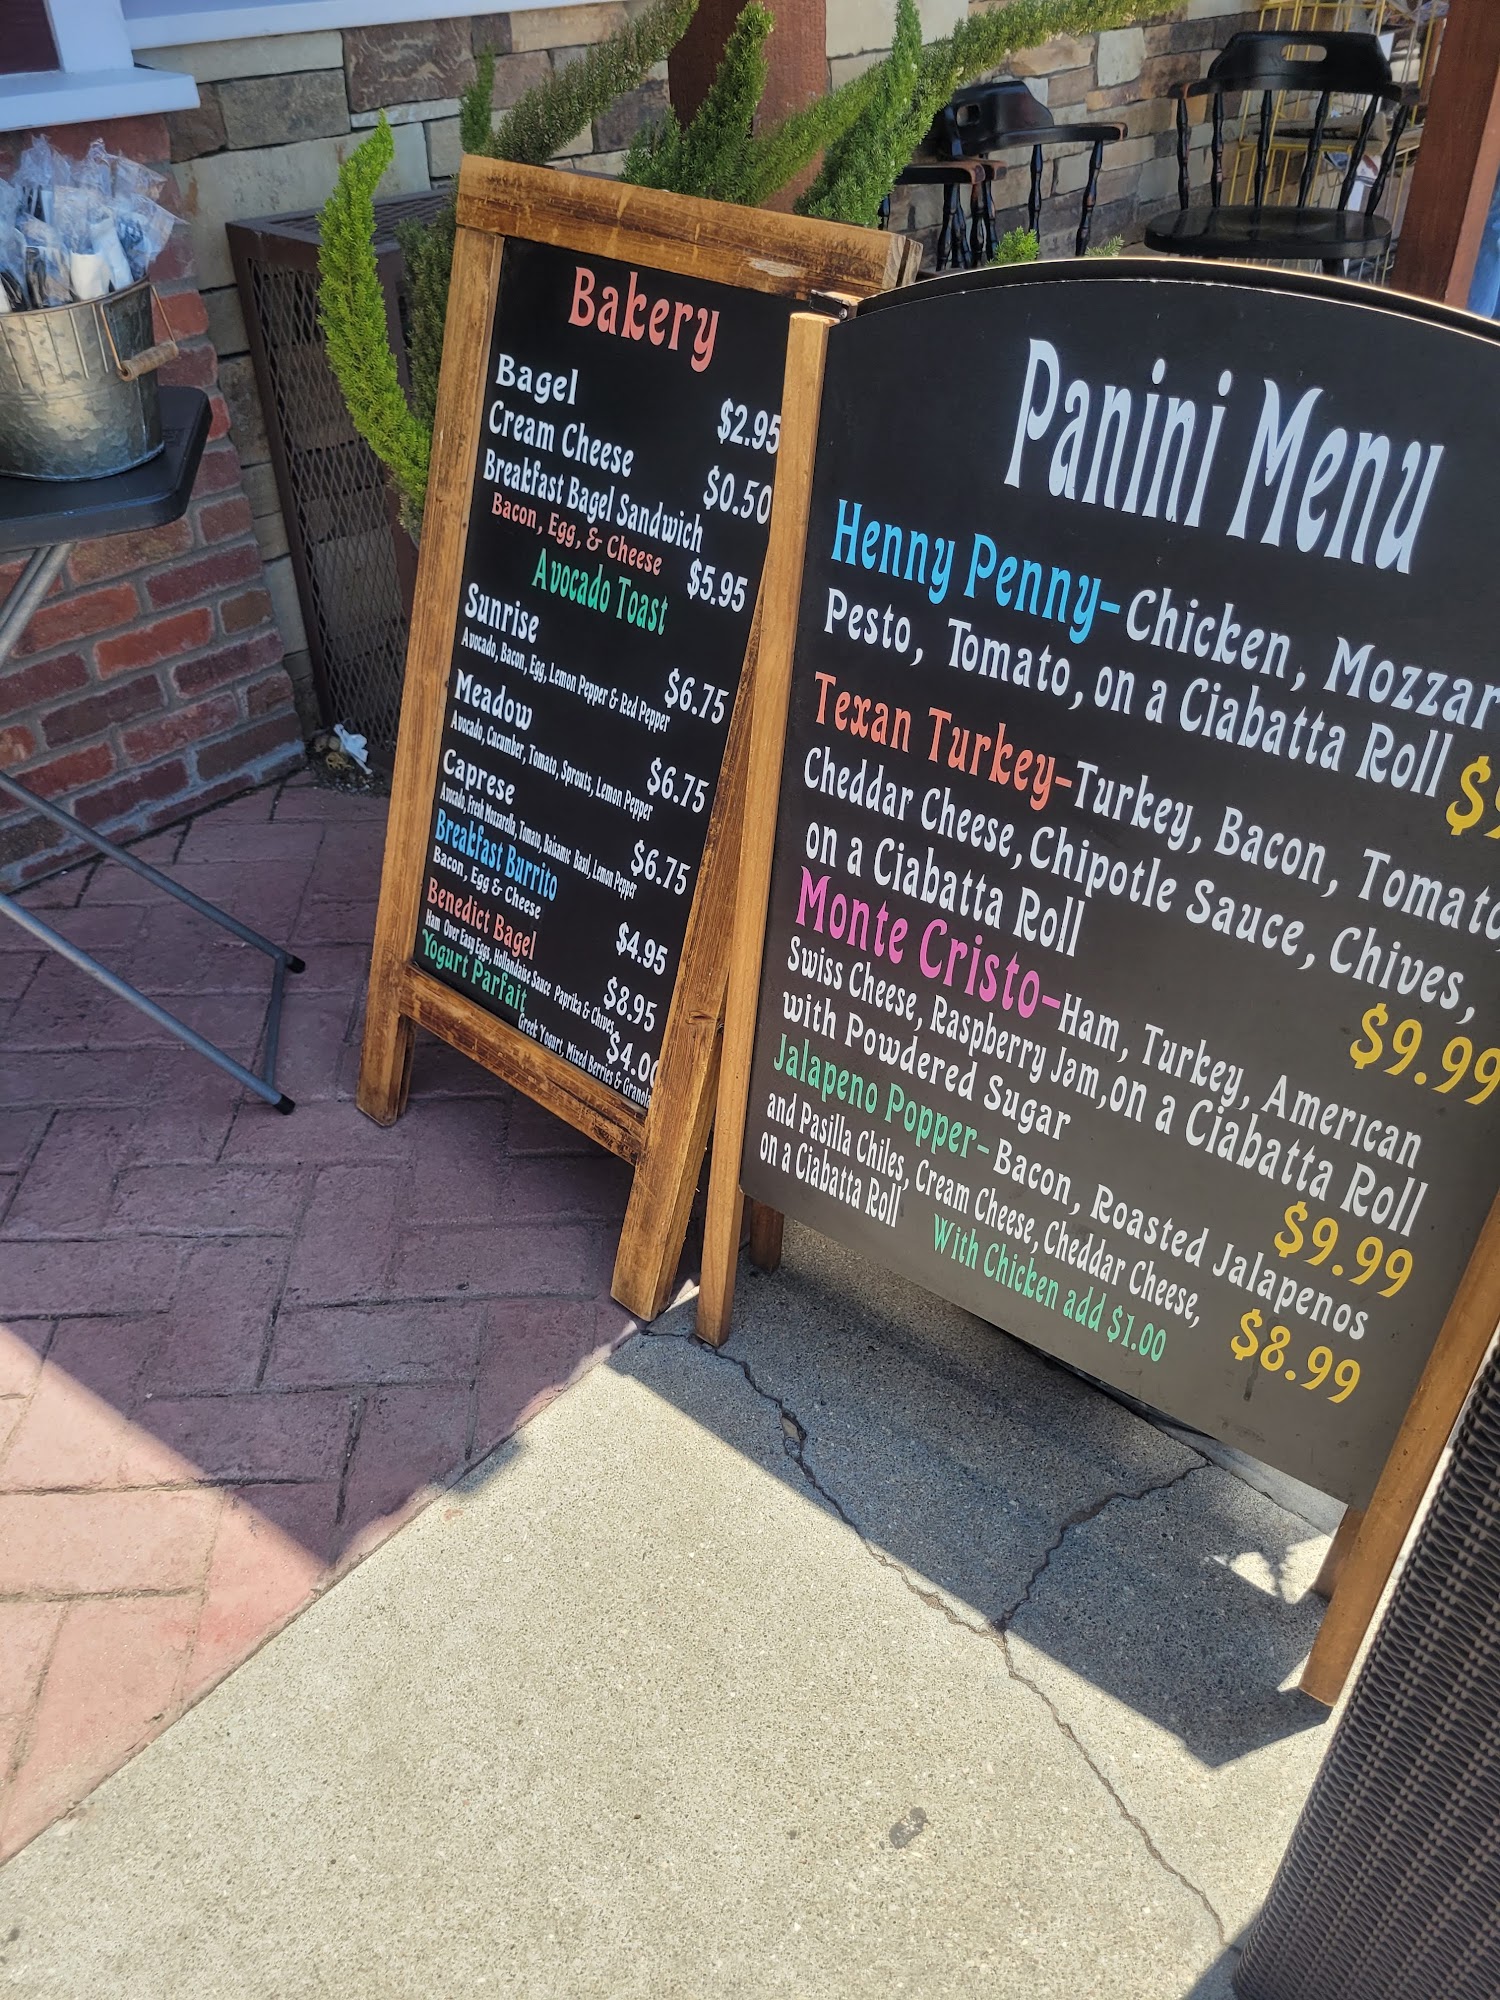 Bakery
Bagel $2.95
Cream Cheese $0.50
Breakfast Bagel Sandwich
Bacon, Egg, & Cheese $5.95
Avocado Toast
Sunrise
Avocado, Bacon, Egg, Lemon Pepper & Red Pepper $6.75
Meadow
Avocado, Cucumber, Tomato, Sprouts, Lemon Pepper $6.75
Caprese
Avocado, Fresh Mozzarella, Tomato, Balsamic Basil, Lemon Pepper $6.75
Breakfast Burrito
Bacon, Egg & Cheese $4.95
Benedict Bagel
Ham Over Easy Eggs, Hollandaise Sauce Paprika & Chives $8.95
Yogurt Parfait $4.00
Greek Yogurt, Mixed Berries & Granola
Panini Menu
Henny Penny-Chicken, Mozzar
Pesto, Tomato, on a Ciabatta Roll $9
Texan Turkey-Turkey, Bacon, Tomato,
Cheddar Cheese, Chipotle Sauce, Chives,
on a Ciabatta Roll $9.99
Monte Cristo-Ham, Turkey, American
Swiss Cheese, Raspberry Jam, on a Ciabatta Roll
with Powdered Sugar $9.99
Jalapeno Popper-Bacon, Roasted Jalapenos
and Pasilla Chiles, Cream Cheese, Cheddar Cheese,
on a Ciabatta Roll $8.99
With Chicken add $1.00